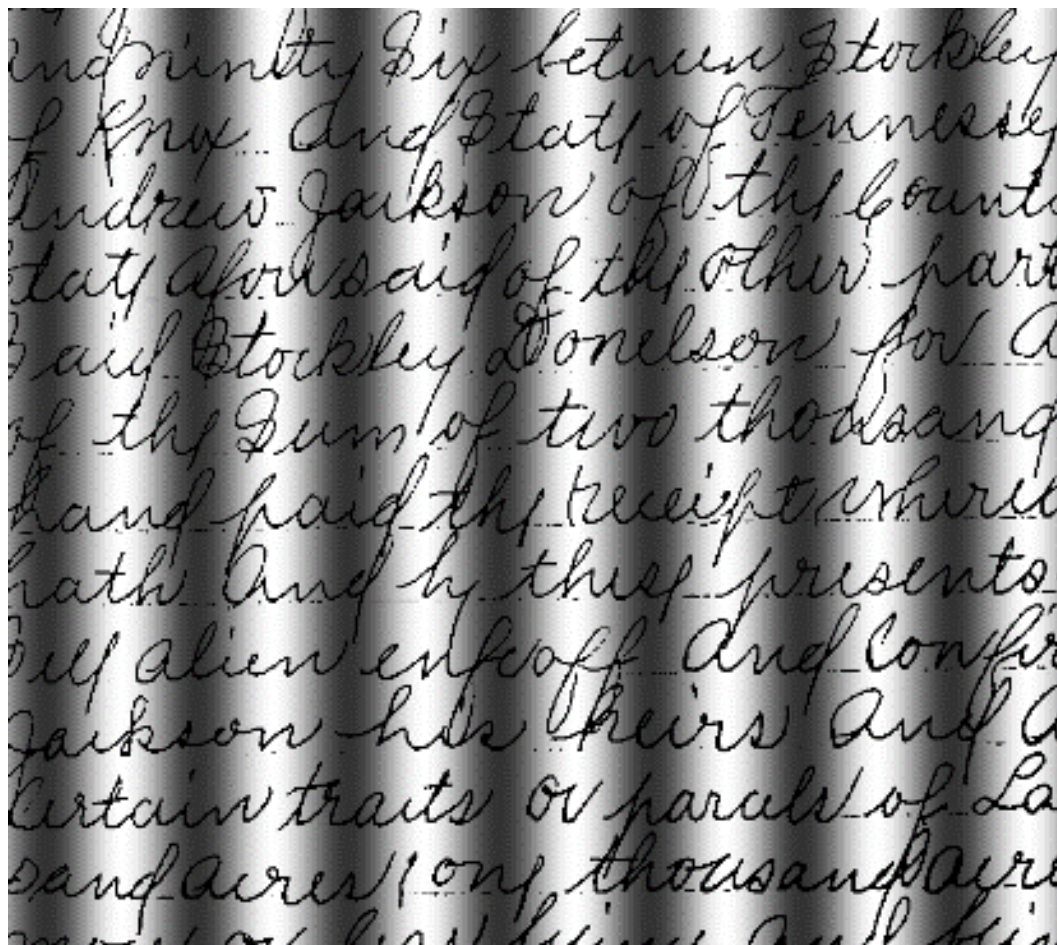 and ninety Six between Stockley
of Knox And State of Tennesse
Andrew Jackson of the Count
State Aforesaid of the other part
Said Stockley Donelson for A
of the Sum of two thousand
hand paid the receipt where
hath And by these presents
Sell alien enfeoff And Confir
Jackson his heirs And A
Certain tracts or parcels of La
sand acres one thousand acre